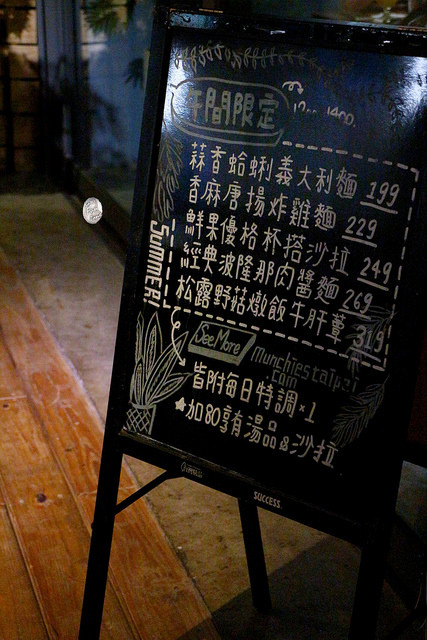 午間限定
1400.
蒜香蛤蜊義大利麵 199
香麻唐揚炸雞麵 229
鮮果優格杯搭沙拉 249
經典波隆那肉醬麵 269
松露野菇燉飯牛肝蕈 319
SUMMER!
See More
munchiestaipei
.com
皆附每日特調×1
★加80享有湯品&沙拉
SUCCESS